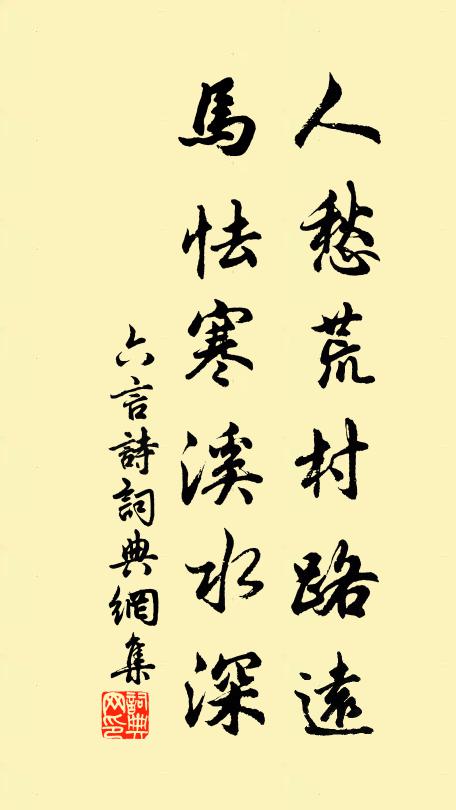 人愁荒村路遠
馬怯寒溪水深
六言詩詞典網集
詞典網印